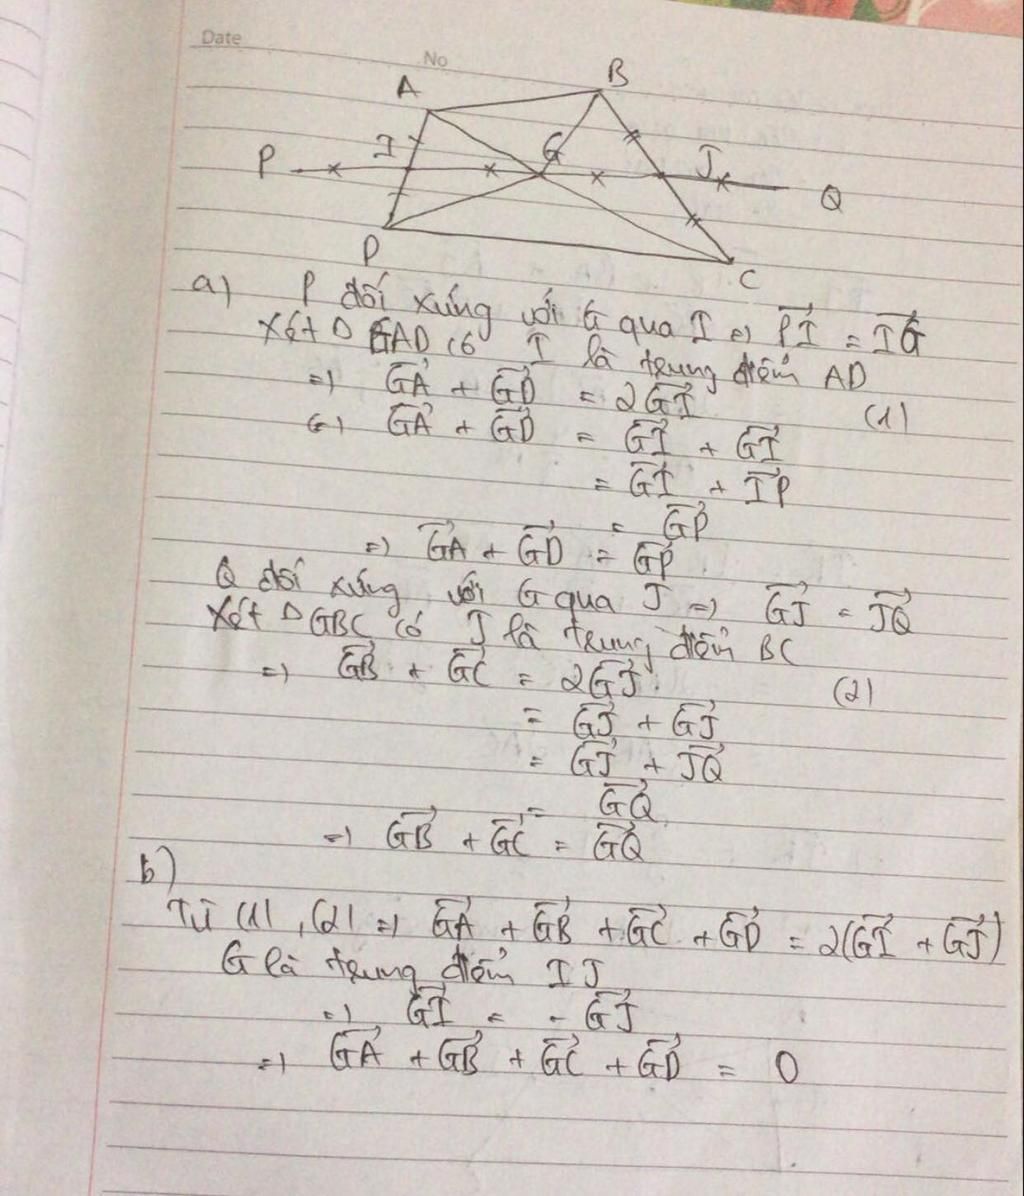 Date
No
A
B
I
G
J
P
Q
D
C
a) P đối xứng với G qua I => PI⃗ = IG⃗
Xét Δ GAD có I là trung điểm AD
=> GA⃗ + GD⃗ = 2GI⃗ (1)
<=> GA⃗ + GD⃗ = GI⃗ + GI⃗
= GI⃗ + IP⃗
= GP⃗
=> GA⃗ + GD⃗ = GP⃗
Q đối xứng với G qua J => GJ⃗ = JQ⃗
Xét Δ GBC có J là trung điểm BC
=> GB⃗ + GC⃗ = 2GJ⃗ (2)
= GJ⃗ + GJ⃗
= GJ⃗ + JQ⃗
= GQ⃗
=> GB⃗ + GC⃗ = GQ⃗
b)
Từ (1), (2) => GA⃗ + GB⃗ + GC⃗ + GD⃗ = 2(GI⃗ + GJ⃗)
G là trung điểm IJ
=> GI⃗ = - GJ⃗
=> GA⃗ + GB⃗ + GC⃗ + GD⃗ = 0